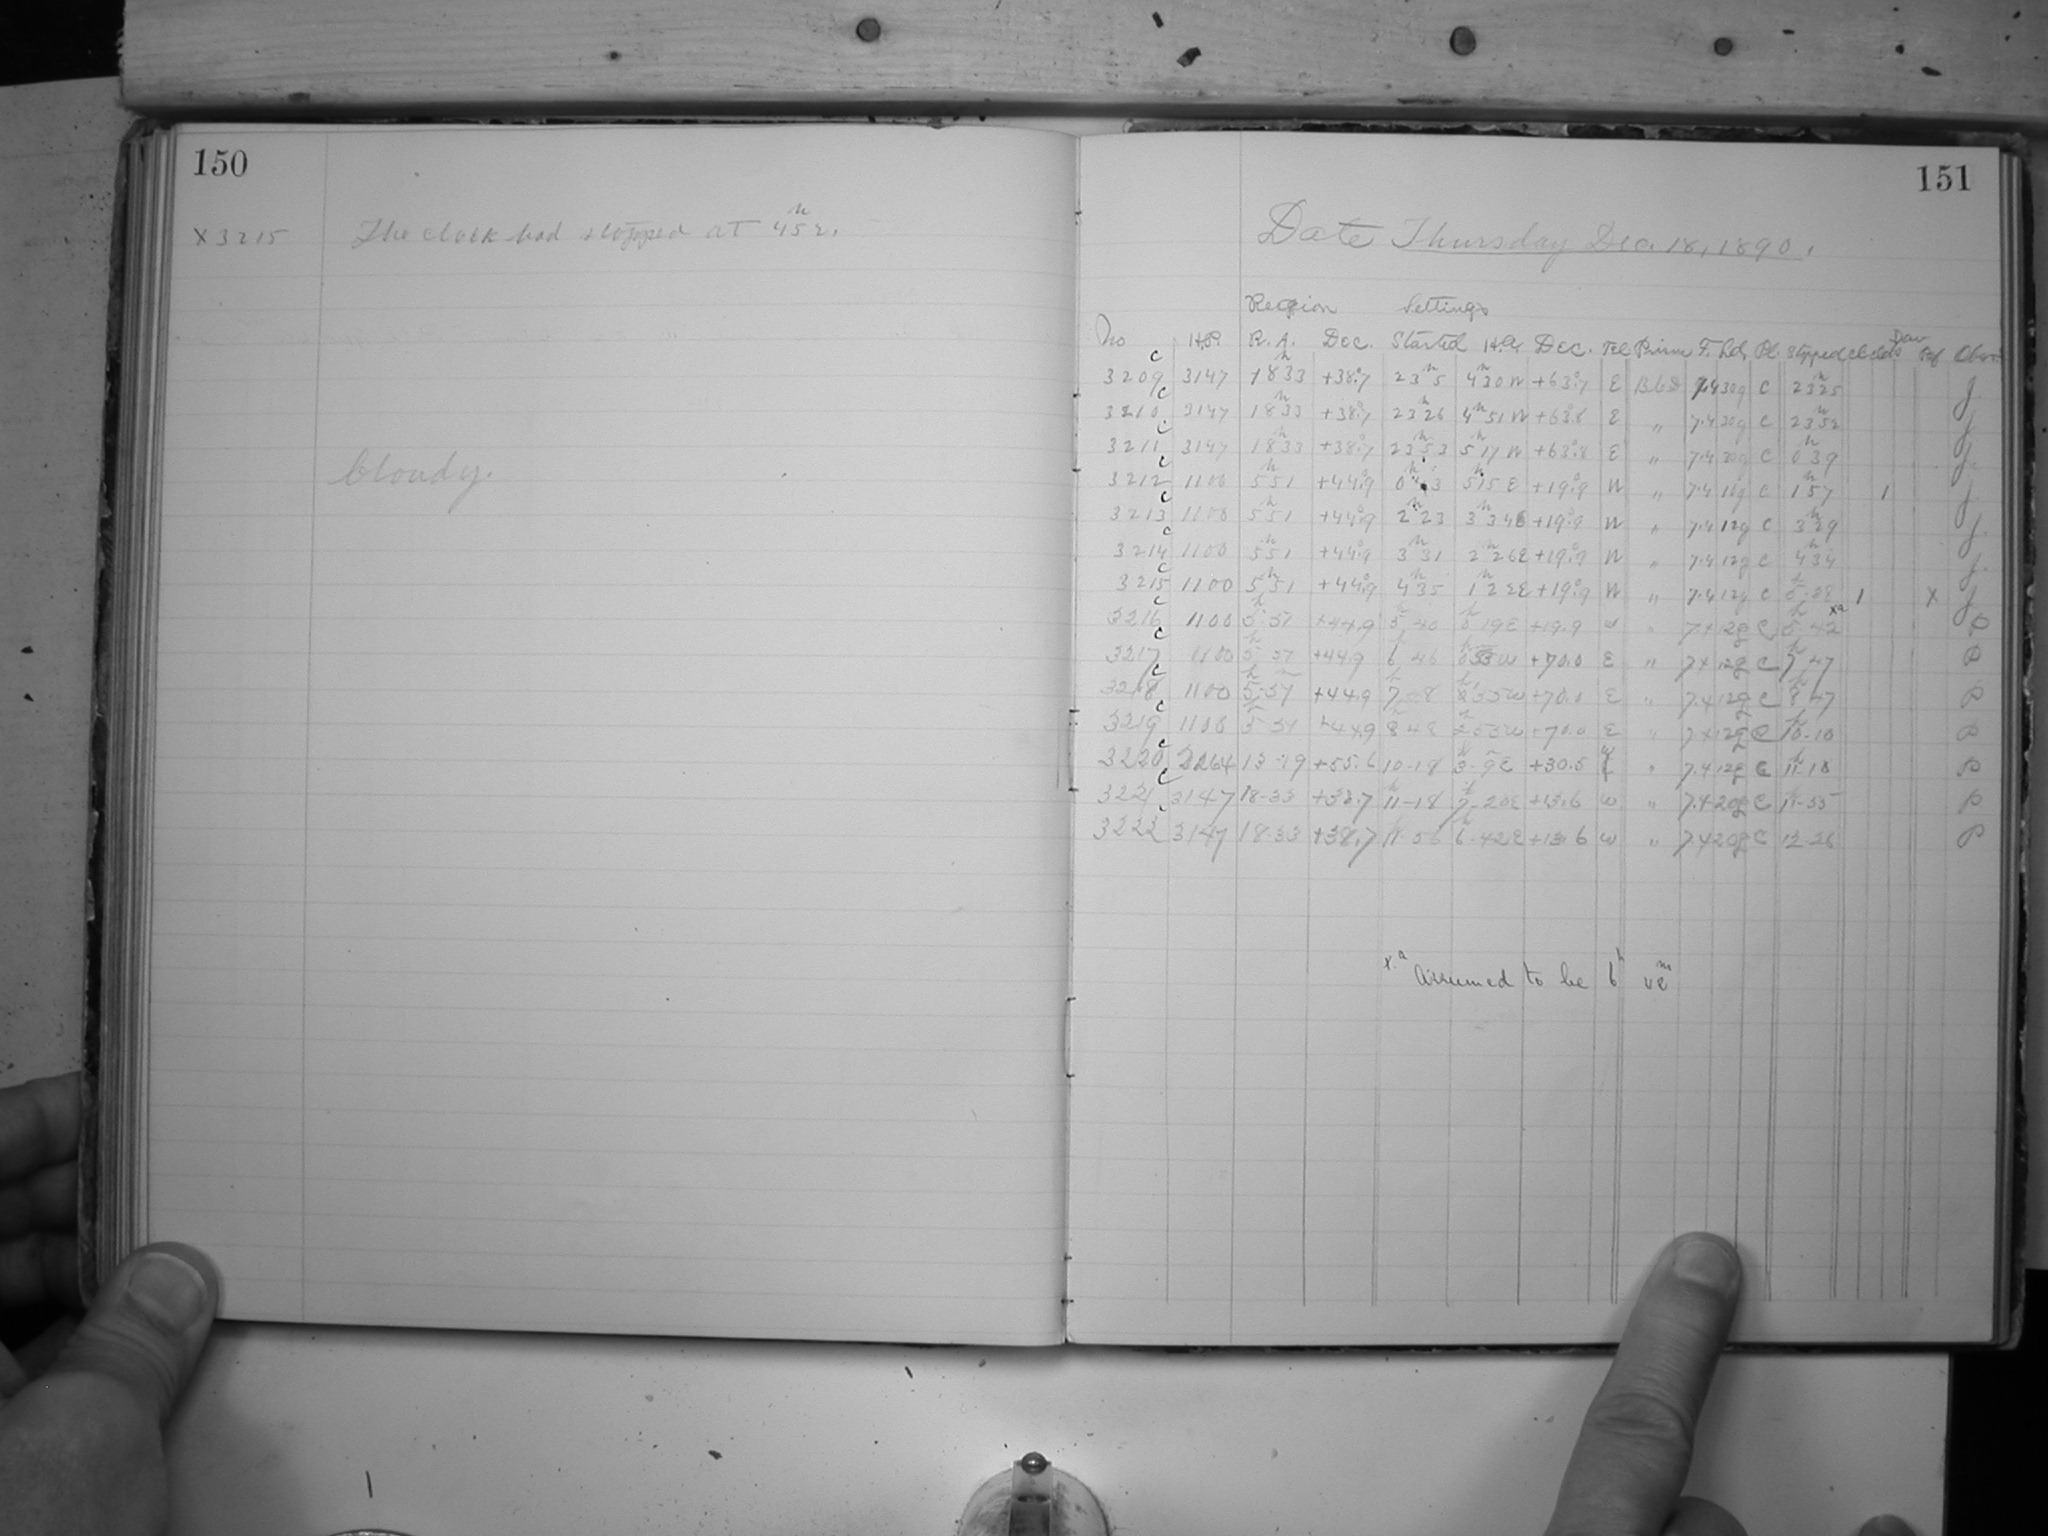 150
X 3215 The clock had stopped at 4h 52.
Cloudy.
151
Date Thursday Dec. 18, 1890.
Region Settings
No H.P. R.A. Dec. Started H.A. Dec. Tel Prism Pl. Stopped Obsr.
3209 c 3147 18h33 +38°.7 23h5 4h30 W +63°.7 E 7.4 30g C 23h25 J.
3210 c 3147 18h33 +38°.7 23h26 4h51 W +63°.8 E " 7.4 30g C 23h52 J.
3211 c 3147 18h33 +38°.7 23h53 5h17 W +63°.8 E " 7.4 30g C 0h39 J.
3212 c 1100 5h51 +44°.9 5h15 E +19°.9 W " 7.4 C 1h57 1 J.
3213 c 1100 5h51 +44°.9 2h23 3h34 E +19°.9 W " 7.4 12g C 3h29 J.
3214 c 1100 5h51 +44°.9 3h31 2h26 E +19°.9 W " 7.4 12g C 4h34 J.
3215 c 1100 5h51 +44°.9 4h35 1h22 E +19°.9 W " 7.4 12g C 1 X J
3216 c 1100 +44.9 5h40 19 E +19.9 W " 7.4 12g C 5h42 xa P
3217 c 1100 +44.9 6h46 W +70.0 E " 7.4 12g C 7h47 P
3218 c 1100 +44.9 W +70.0 E " 7.4 12g C 8h47 P
3219 c 1100 +44.9 8h48 W +70.0 E " 7.4 12g C 10h-10 P
3220 c 3264 13-19 +55.6 10-18 3h-9 E +30.5 " 7.4 12g C 11h-18 P
3221 c 3147 18-33 +38.7 11h-18 7h-20 E +13.6 W " 7.4 20g C 11h-55 P
3222 c 3147 18-33 +38.7 11h-56 6h-42 E +13.6 W " 7.4 20g C 12-26 P
x.a Assumed to be 6h 42m